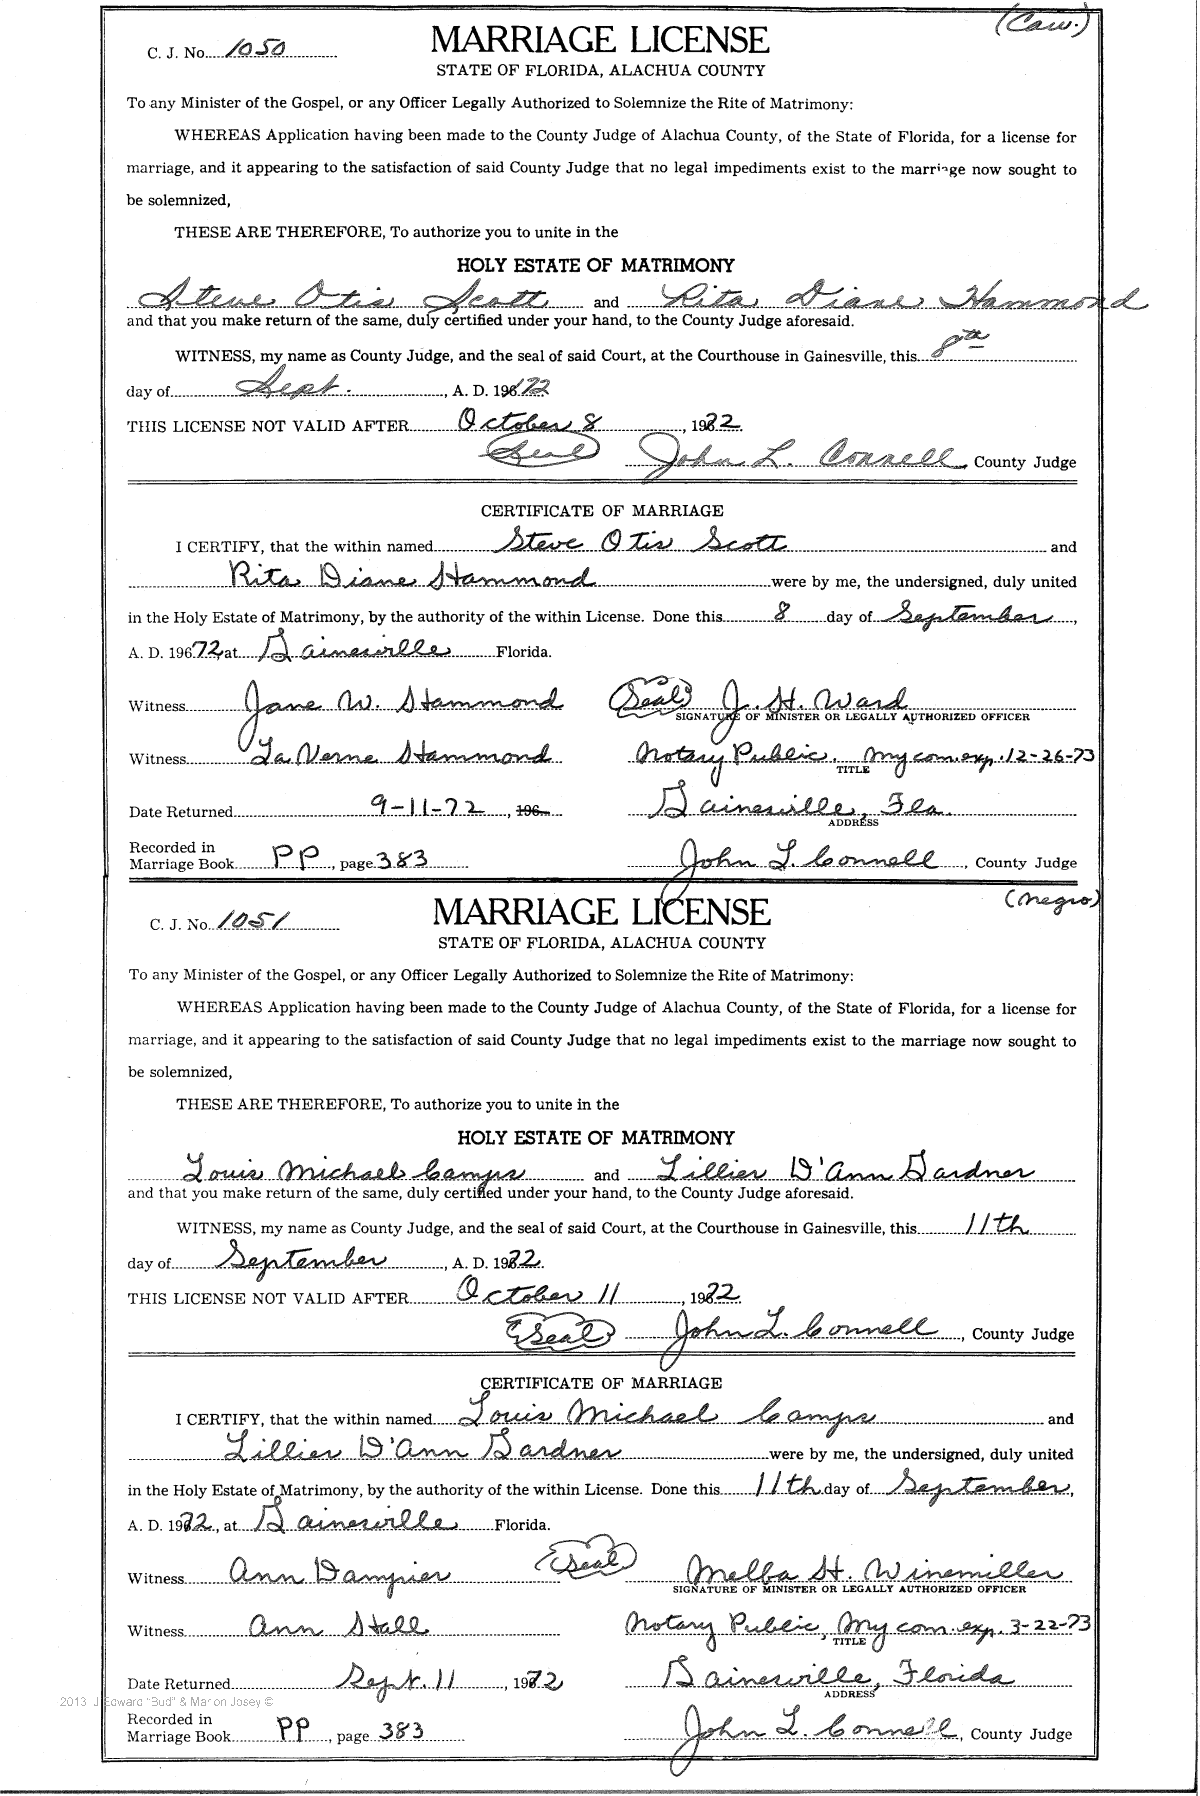 (Cau.)
C. J. No. 1050 MARRIAGE LICENSE
STATE OF FLORIDA, ALACHUA COUNTY
To any Minister of the Gospel, or any Officer Legally Authorized to Solemnize the Rite of Matrimony:
WHEREAS Application having been made to the County Judge of Alachua County, of the State of Florida, for a license for
marriage, and it appearing to the satisfaction of said County Judge that no legal impediments exist to the marriage now sought to
be solemnized,
THESE ARE THEREFORE, To authorize you to unite in the
HOLY ESTATE OF MATRIMONY
Steve Otis Scott and Rita Diane Hammond
and that you make return of the same, duly certified under your hand, to the County Judge aforesaid.
WITNESS, my name as County Judge, and the seal of said Court, at the Courthouse in Gainesville, this 8th
day of Sept. , A. D. 1972
THIS LICENSE NOT VALID AFTER October 8 , 1972.
(Seal) John L. Connell, County Judge
CERTIFICATE OF MARRIAGE
I CERTIFY, that the within named Steve Otis Scott and
Rita Diane Hammond were by me, the undersigned, duly united
in the Holy Estate of Matrimony, by the authority of the within License. Done this 8 day of September,
A. D. 19672, at Gainesville Florida.
Witness Jane W. Hammond (Seal) J. H. Ward
SIGNATURE OF MINISTER OR LEGALLY AUTHORIZED OFFICER
Witness LaVerne Hammond Notary Public. My com. exp. 12-26-73
TITLE
Date Returned 9-11-72 , 196 Gainesville, Fla.
ADDRESS
Recorded in
Marriage Book PP , page 383 John L. Connell , County Judge
(Negro)
C. J. No. 1051 MARRIAGE LICENSE
STATE OF FLORIDA, ALACHUA COUNTY
To any Minister of the Gospel, or any Officer Legally Authorized to Solemnize the Rite of Matrimony:
WHEREAS Application having been made to the County Judge of Alachua County, of the State of Florida, for a license for
marriage, and it appearing to the satisfaction of said County Judge that no legal impediments exist to the marriage now sought to
be solemnized,
THESE ARE THEREFORE, To authorize you to unite in the
HOLY ESTATE OF MATRIMONY
Louis Michael Camps and Lillier D'Ann Gardner
and that you make return of the same, duly certified under your hand, to the County Judge aforesaid.
WITNESS, my name as County Judge, and the seal of said Court, at the Courthouse in Gainesville, this 11th
day of September , A. D. 1972.
THIS LICENSE NOT VALID AFTER October 11 , 1972.
(Seal) John L. Connell , County Judge
CERTIFICATE OF MARRIAGE
I CERTIFY, that the within named Louis Michael Camps and
Lillier D'Ann Gardner were by me, the undersigned, duly united
in the Holy Estate of Matrimony, by the authority of the within License. Done this 11th day of September,
A. D. 1972, at Gainesville Florida.
Witness Ann Dampier (Seal) Melba H. Winemiller
SIGNATURE OF MINISTER OR LEGALLY AUTHORIZED OFFICER
Witness Ann Stall Notary Public, My com. exp. 3-22-73
TITLE
Date Returned Sept. 11 , 1972 Gainesville, Florida
ADDRESS
2013 J Edward "Bud" & Marion Josey ©
Recorded in
Marriage Book PP , page 383 John L. Connell, County Judge